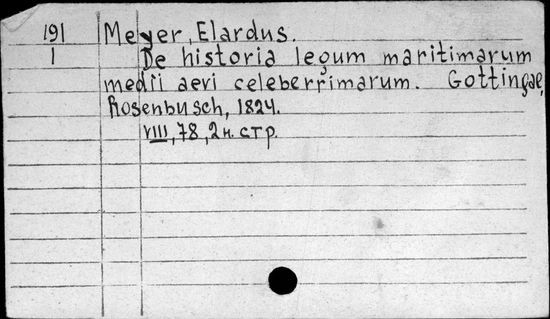 191 Meyer, Elardus.
1 De historia legum maritimarum
medii aevi celeberrimarum. Gottingae,
Rosenbusch, 1824.
VIII, 78, 2 н. стр.